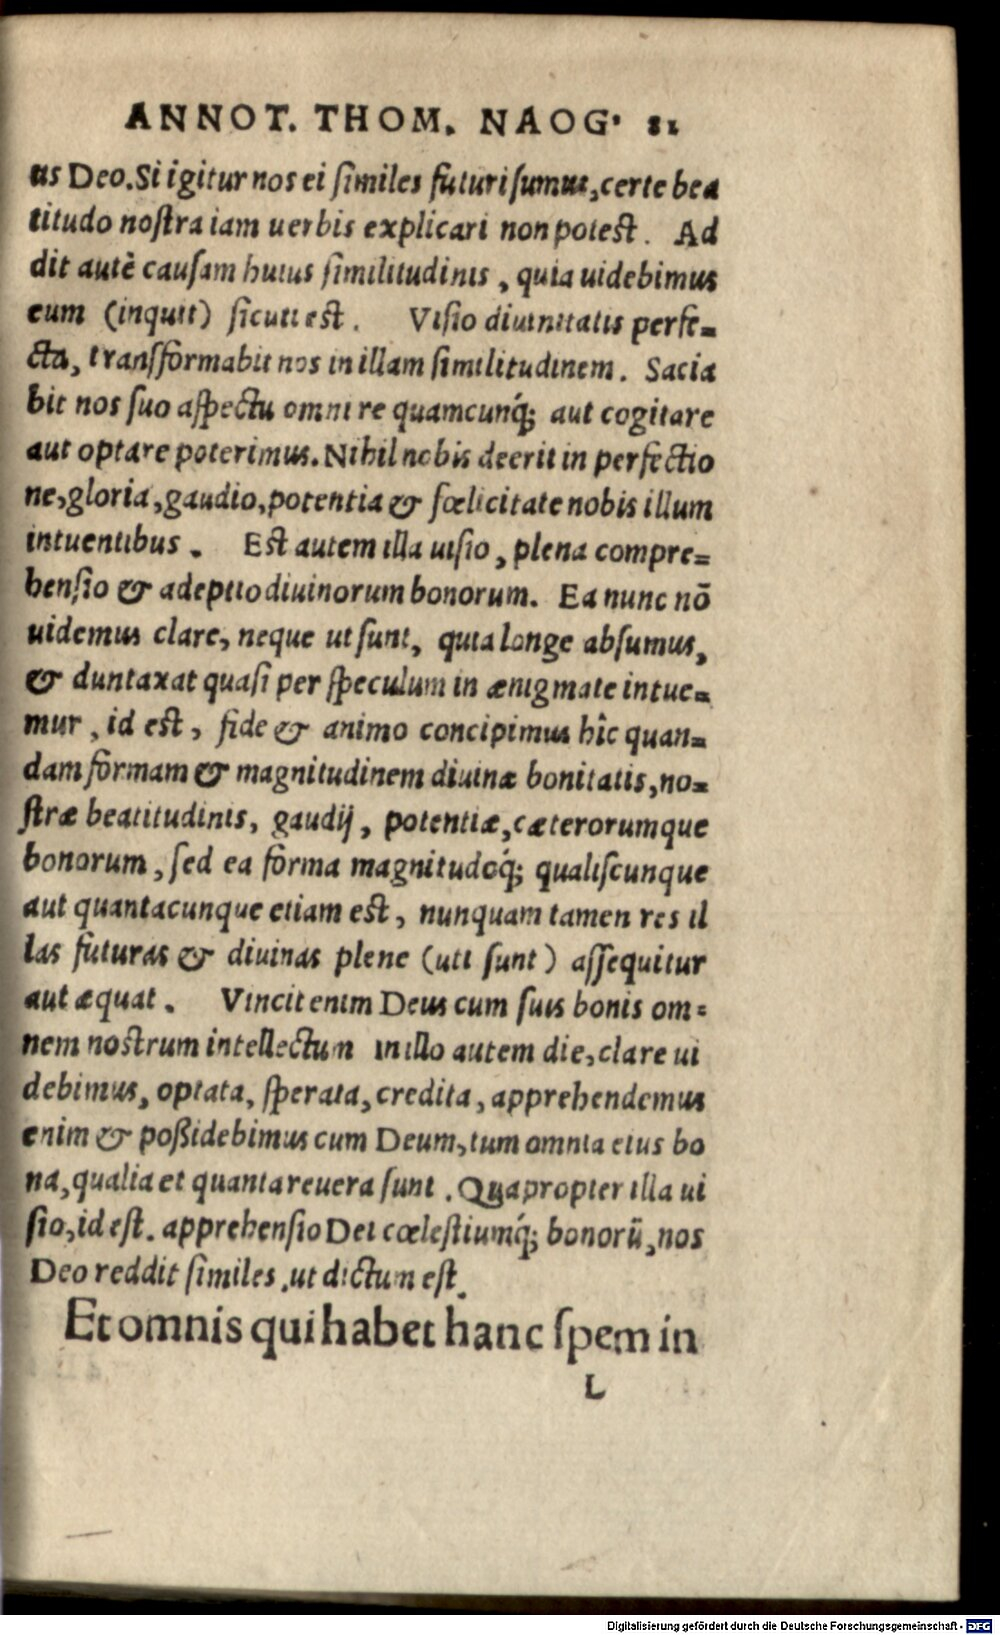 ANNOT. THOM. NAOG. 81
us Deo. Si igitur nos ei ſimiles futuri ſumus, certe bea
titudo noſtra iam uerbis explicari non poteſt. Ad
dit autē cauſam huius ſimilitudinis, quia uidebimus
eum (inquit) ſicuti eſt. Viſio diuinitatis perfe-
cta, tranſformabit nos in illam ſimilitudinem. Sacia
bit nos ſuo aſpectu omni re quamcunq́; aut cogitare
aut optare poterimus. Nihil nobis deerit in perfectio
ne, gloria, gaudio, potentia & fœlicitate nobis illum
intuentibus. Eſt autem illa uiſio, plena compre-
henſio & adeptio diuinorum bonorum. Ea nunc nō
uidemus clare, neque ut ſunt, quia longe abſumus,
& duntaxat quaſi per ſpeculum in ænigmate intue-
mur, id eſt, fide & animo concipimus hîc quan-
dam formam & magnitudinem diuinæ bonitatis, no-
ſtræ beatitudinis, gaudij, potentiæ, cæterorumque
bonorum, ſed ea forma magnitudoq́; qualiſcunque
aut quantacunque etiam eſt, nunquam tamen res il
las futuras & diuinas plene (uti ſunt) aſſequitur
aut æquat. Vincit enim Deus cum ſuis bonis om-
nem noſtrum intellectum in illo autem die, clare ui
debimus, optata, ſperata, credita, apprehendemus
enim & poßidebimus cum Deum, tum omnia eius bo
na, qualia et quanta reuera ſunt. Quapropter illa ui
ſio, id eſt. apprehenſio Dei cœleſtiumq́; bonorū, nos
Deo reddit ſimiles. ut dictum eſt.
Et omnis qui habet hanc ſpem in
L
Digitalisierung gefördert durch die Deutsche Forschungsgemeinschaft - DFG